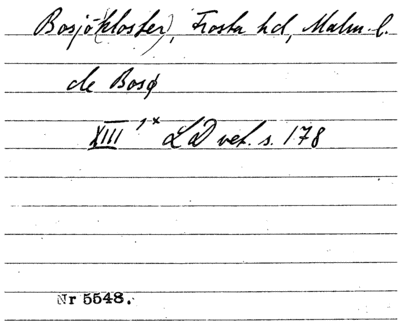 Bosjö(kloster), Frosta hd, Malm. l.
de Bosø
XIII ,x LD vet. s. 178
Nr 5548.